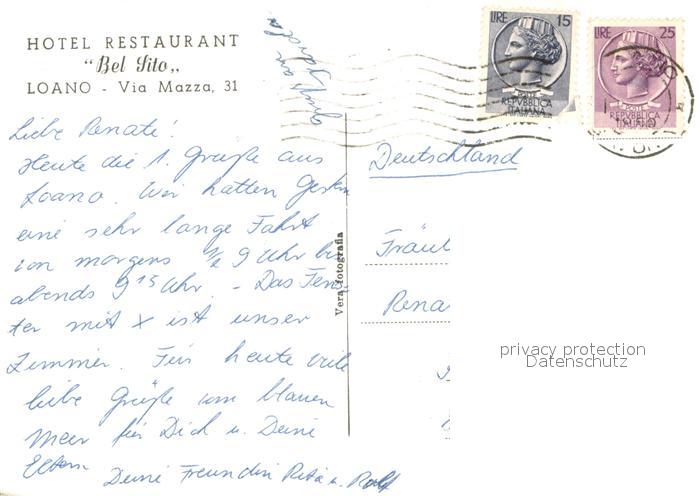 HOTEL RESTAURANT
"Bel Sito„
LOANO - Via Mazza, 31
Liebe Renate!
Heute die 1. Grüße aus
Loano. Wir hatten Gestern
eine sehr lange Fahrt
von morgens 1/2 9 Uhr bis
abends 9 15 Uhr. - Das Fens-
ter mit x ist unser
Zimmer. Für heute viele
liebe Grüße vom blauen
Meer für Dich u. Deine
Eltern Deine Freundin Rita u. Rolf
Gruß an
Vera fotografia
LIRE 15
POSTE
REPVBBLICA
ITALIANA
LIRE 25
POSTE
REPVBBLICA
ITALIANA
LOANO
Deutschland
Fräul
Rena
privacy protection
Datenschutz